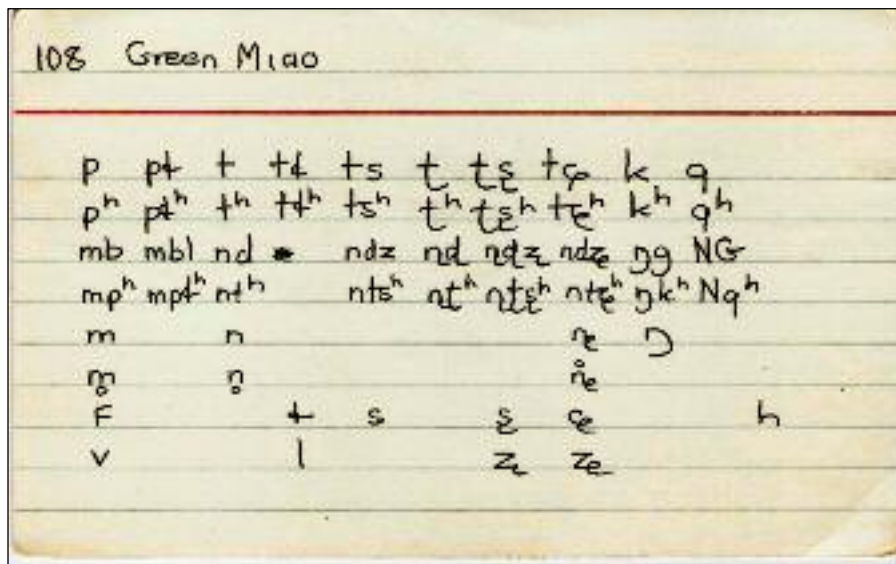 108 Green Miao
p pɬ t tɬ ts ʈ ʈʂ tɕ k q
pʰ pɬʰ tʰ tɬʰ tsʰ ʈʰ ʈʂʰ tɕʰ kʰ qʰ
mb mbl nd ndz ɳɖ ɳɖʐ ndʑ ŋg ɴɢ
mpʰ mpɬʰ ntʰ ntsʰ ɳʈʰ ɳʈʂʰ ntɕʰ ŋkʰ ɴqʰ
m n ȵ ŋ
m̥ n̥ ȵ̊
F ɬ s ʂ ɕ h
v l ʐ ʑ